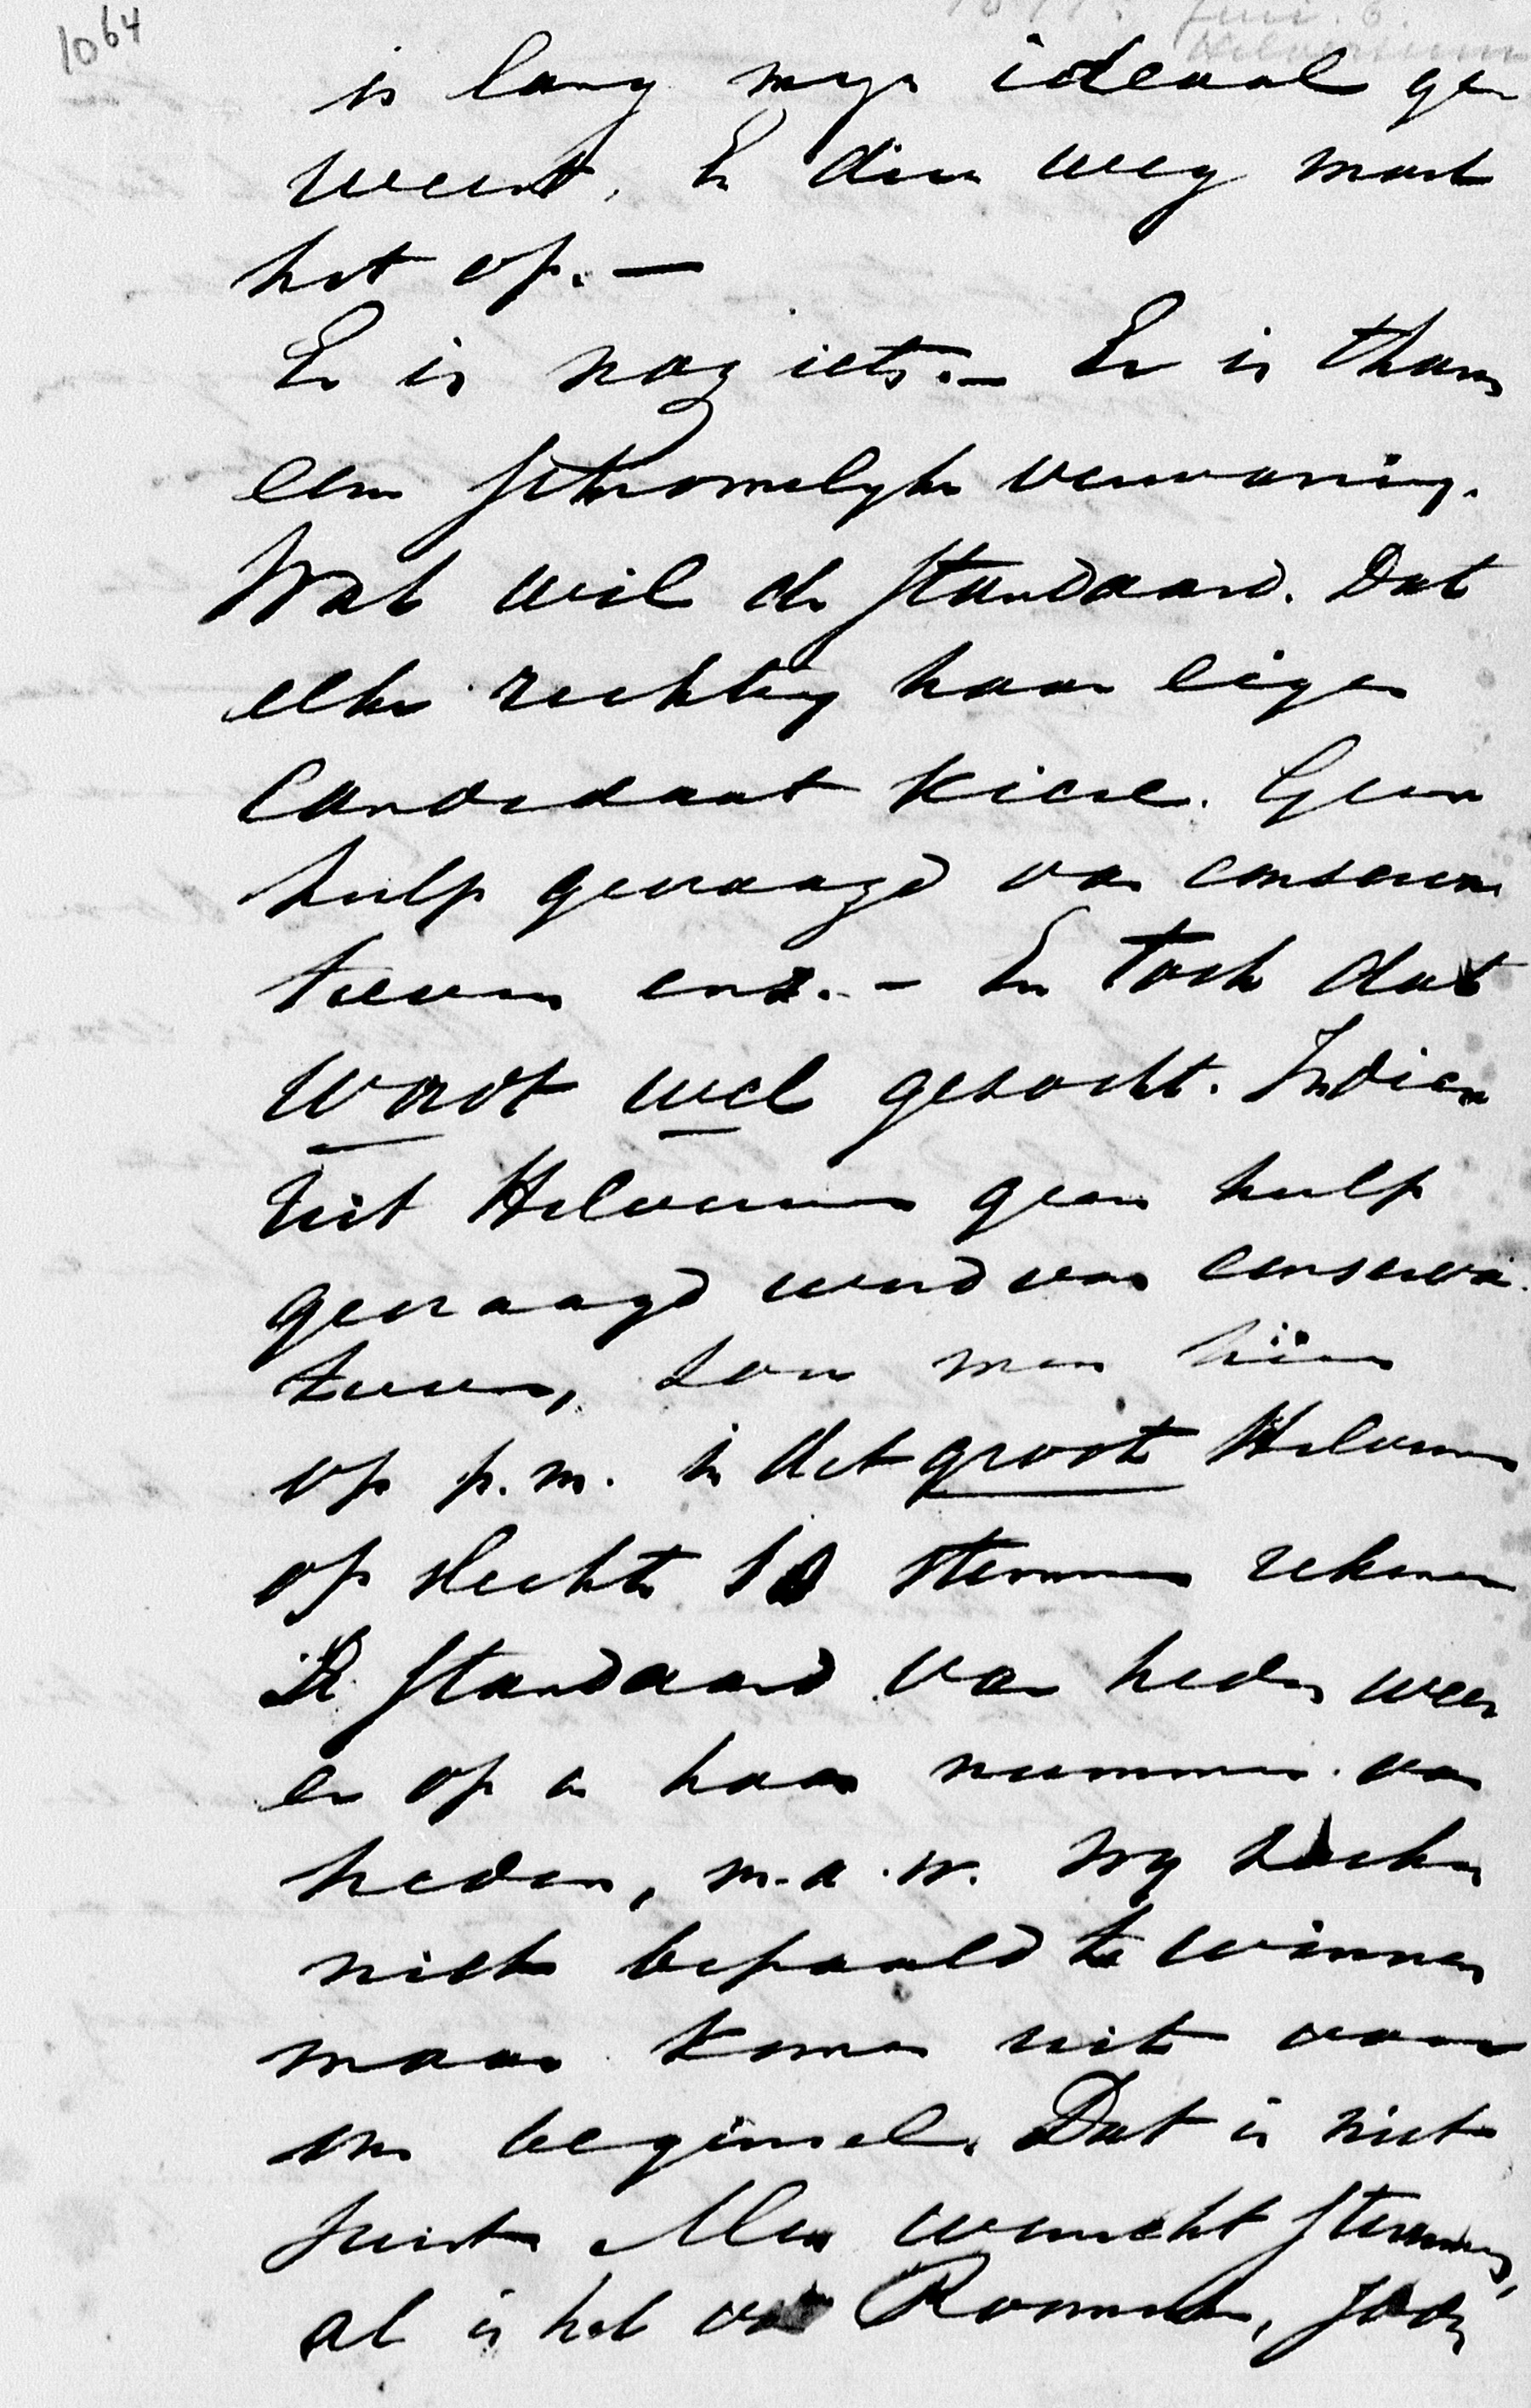 1064
Juni. 6.
Hilversum
is lang myn ideaal ge
weest. En dien weg moet
het op. —
Er is nog iets. — Er is thans
een schromelyke verwarring.
Wat wil de Standaard. Dat
elke richting haar eigen
Candidaat kieze. Geen
hulp gevraagd van conserva
tieven enz. - En toch dat
wordt wel gezocht. Indien
uit Hilversum geen hulp
gevraagd werd van conserva
tieven, zou men hier
op p.m. in het groote Hilversum
op slechts stemmen rekenen
De Standaard van heden weer
er op in haar nummer van
heden, m.a.w. wy zoeken
niet bepaald te winnen
maar komen uit voor
ons beginsel. Dat is niet
juist. Men wenscht stemmen,
al is het van Roomschen, Joden